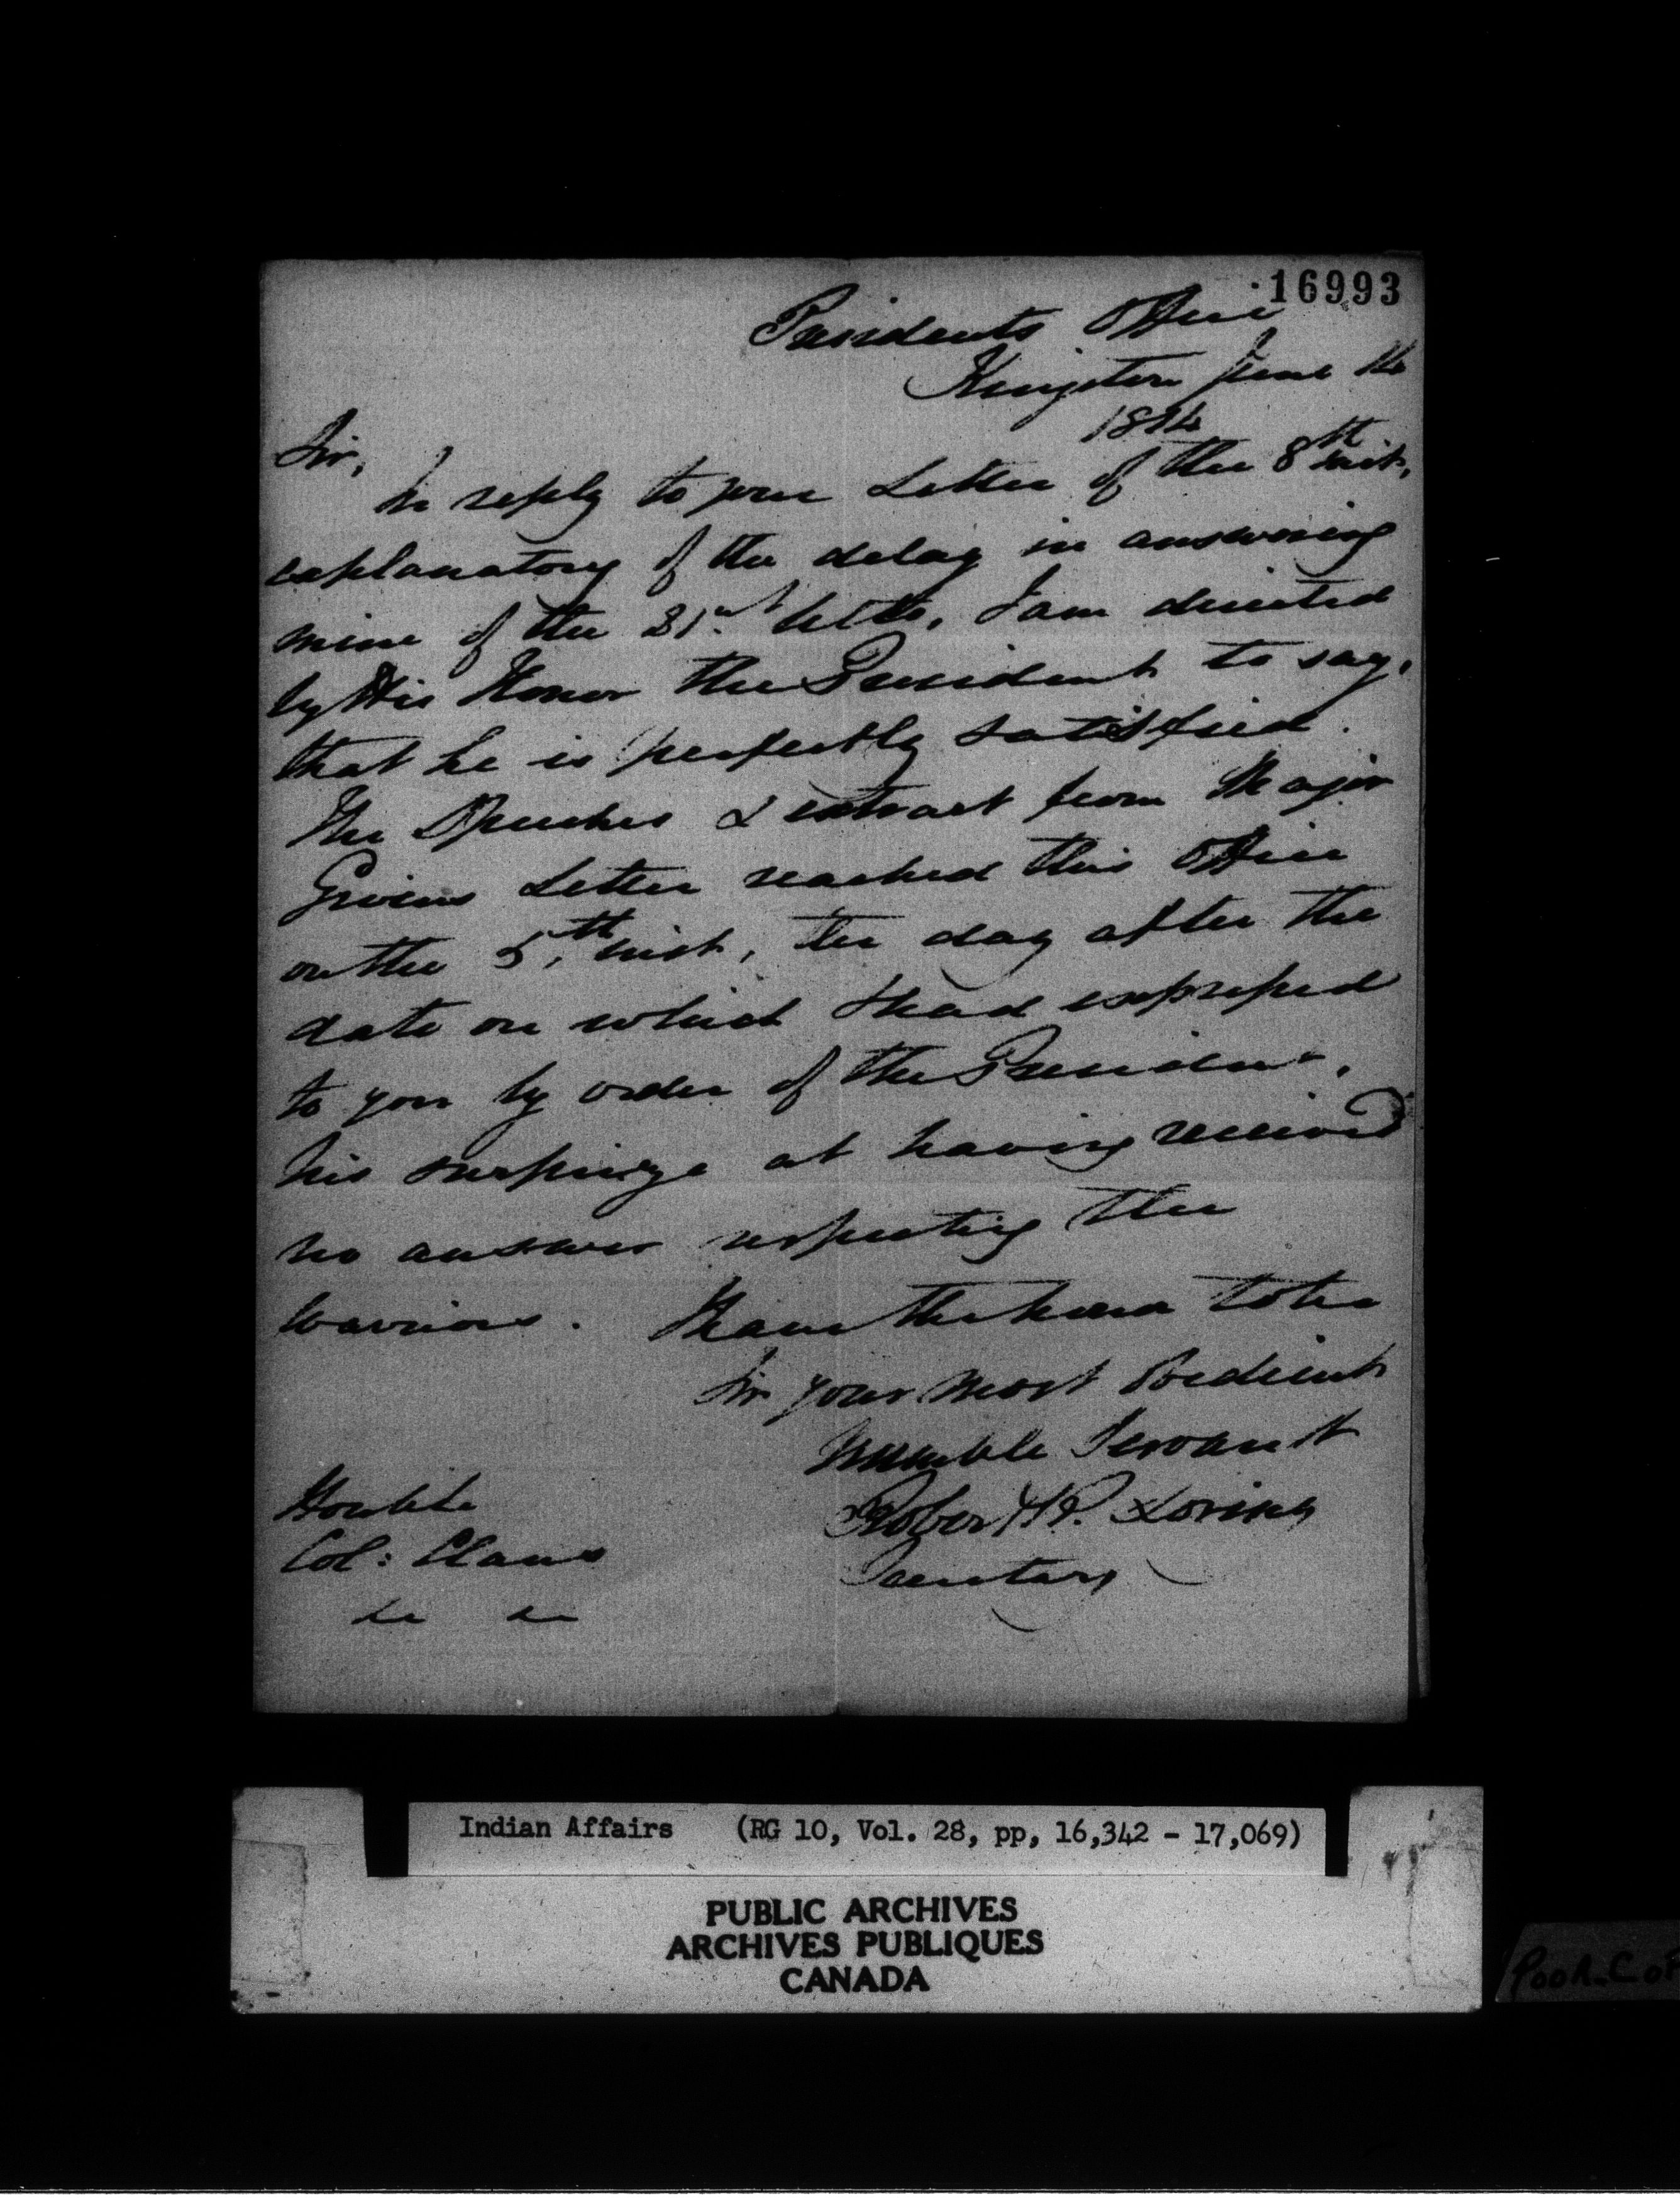 16993
Presidents Office
Kingston June 14
1814
Sir,
In reply to your Letter of the 8th inst,
explanatory of the delay in answering
mine of the 31st Ulto, I am directed
by His Honor the President to say,
that he is perfectly satisfied.
The Speeches & extract from Major
Givins Letter reached this Office
on the 5th inst, the day after the
date on which I had expressed
to you by order of the President,
his surprize at having received
no answer respecting the
Warriors. I have the honor to be
Sir your most Obedient
Humble Servant
Robert R. Loring
Secretary
Honble
Col: Claus
Indian Affairs (RG 10, Vol. 28, pp, 16,342 - 17,069)
PUBLIC ARCHIVES
ARCHIVES PUBLIQUES
CANADA
Poor Cop